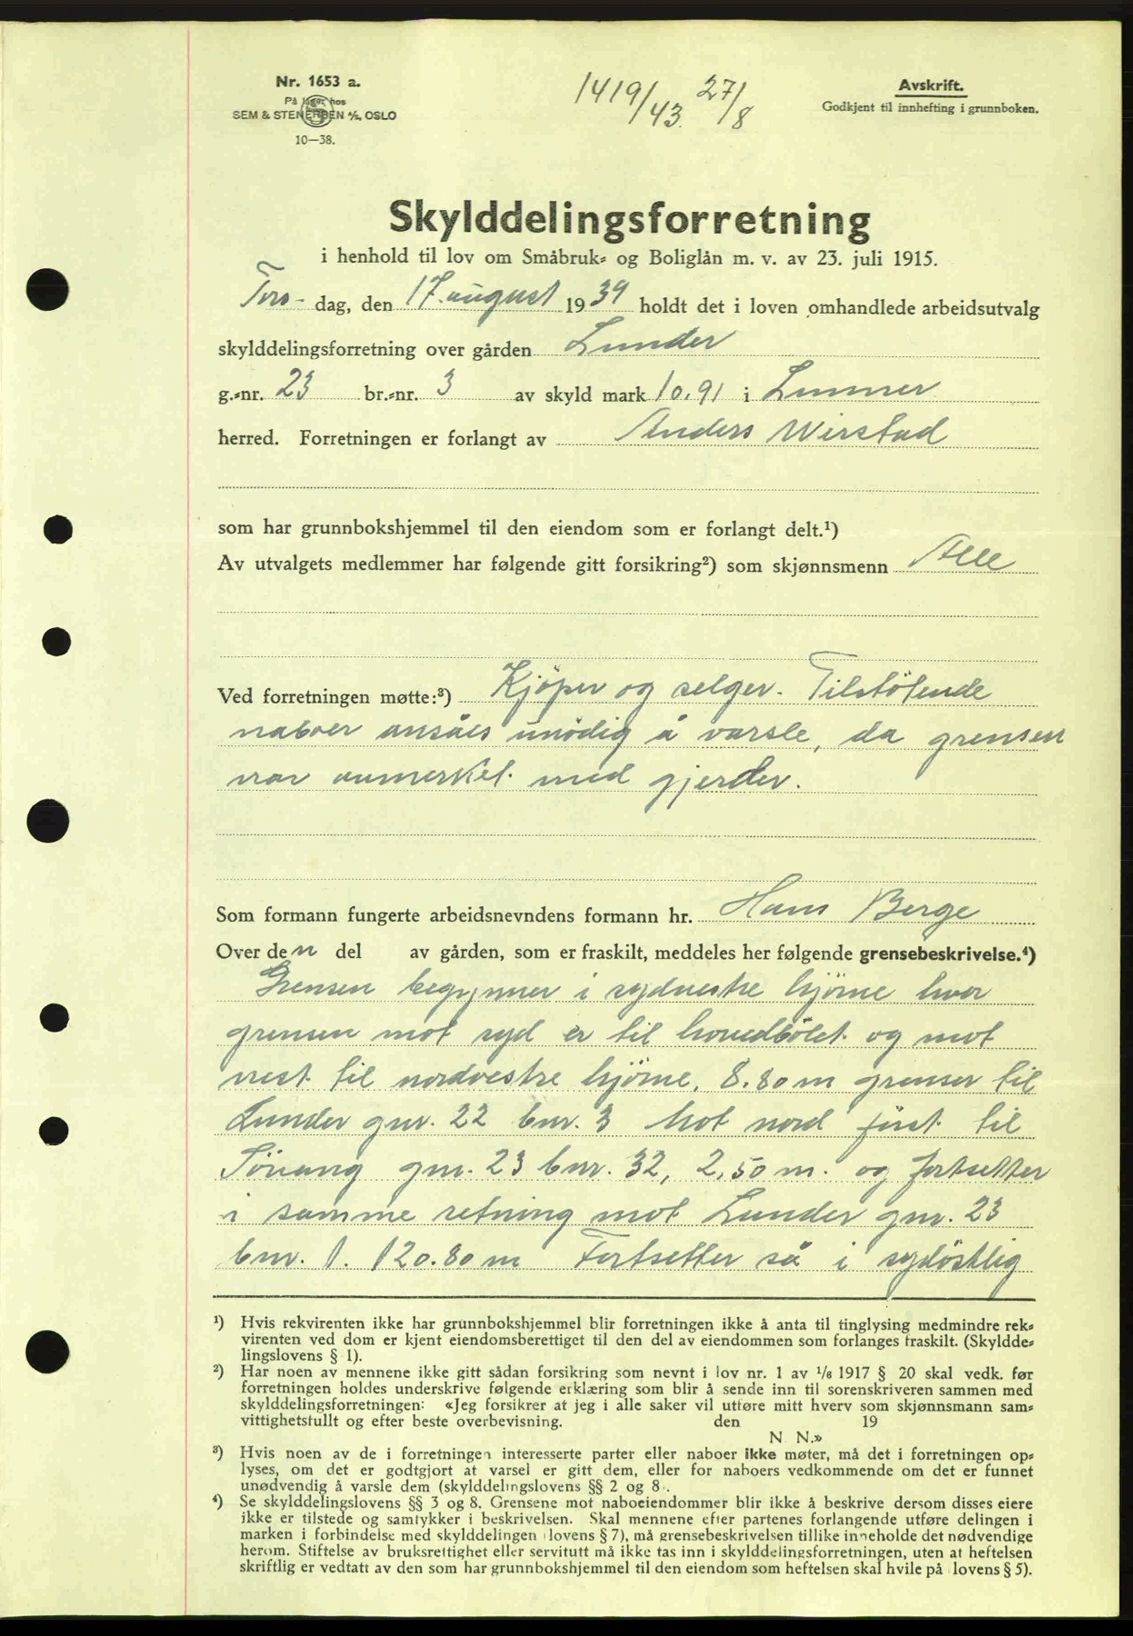 Nr. 1653 a.
På lager hos
SEM & STENERSEN A/S, OSLO
10—38.
1419/43. 27/8
Avskrift.
Godkjent til innhefting i grunnboken.
Skylddelingsforretning
i henhold til lov om Småbruk- og Boliglån m. v. av 23. juli 1915.
Tors-dag, den 17. august 1939 holdt det i loven omhandlede arbeidsutvalg
skylddelingsforretning over gården Lunder
g.-nr. 23 br.-nr. 3 av skyld mark 10,91 i Lunner
herred. Forretningen er forlangt av Anders Wirstad
som har grunnbokshjemmel til den eiendom som er forlangt delt.¹)
Av utvalgets medlemmer har følgende gitt forsikring²) som skjønnsmenn Alle
Ved forretningen møtte:³) Kjöper og selger. Tilstötende
naboer ansåes unödig å varsle, da grensen
var anmerket med gjerder.
Som formann fungerte arbeidsnevndens formann hr. Hans Berge
Over den del av gården, som er fraskilt, meddeles her følgende grensebeskrivelse.⁴)
Grensen begynner i sydvestre hjörne hvor
grensen mot syd er til hovedbölet og mot
vest til nordvestre hjörne, 8.80 m grenser til
Lunder gnr. 22 bnr. 3 Mot nord först til
gnr. 23 bnr. 32, 2,50 m. og fortsetter
i samme retning mot Lunder gnr. 23
bnr. 1. 120.80 m Fortsetter så i sydöstlig
¹) Hvis rekvirenten ikke har grunnbokshjemmel blir forretningen ikke å anta til tinglysing medmindre rek-
virenten ved dom er kjent eiendomsberettiget til den del av eiendommen som forlanges fraskilt. (Skyldde-
lingslovens § 1).
²) Har noen av mennene ikke gitt sådan forsikring som nevnt i lov nr. 1 av 1/6 1917 § 20 skal vedk. før
forretningen holdes underskrive følgende erklæring som blir å sende inn til sorenskriveren sammen med
skylddelingsforretningen: «Jeg forsikrer at jeg i alle saker vil utføre mitt hverv som skjønnsmann sam-
vittighetsfullt og efter beste overbevisning. den 19
N. N.»
³) Hvis noen av de i forretningen interesserte parter eller naboer ikke møter, må det i forretningen op-
lyses, om det er godtgjort at varsel er gitt dem, eller for naboers vedkommende om det er funnet
unødvendig å varsle dem (skylddelingslovens §§ 2 og 8).
⁴) Se skylddelingslovens §§ 3 og 8. Grensene mot naboeiendommer blir ikke å beskrive dersom disses eiere
ikke er tilstede og samtykker i beskrivelsen. Skal mennene efter partenes forlangende utføre delingen i
marken i forbindelse med skylddelingen (lovens § 7), må grensebeskrivelsen tillike inneholde det nødvendige
herom. Stiftelse av bruksrettighet eller servitutt må ikke tas inn i skylddelingsforretningen, uten at heftelsen
skriftlig er vedtatt av den som har grunnbokshjemmel til den eiendom som heftelsen skal hvile på (lovens § 5).